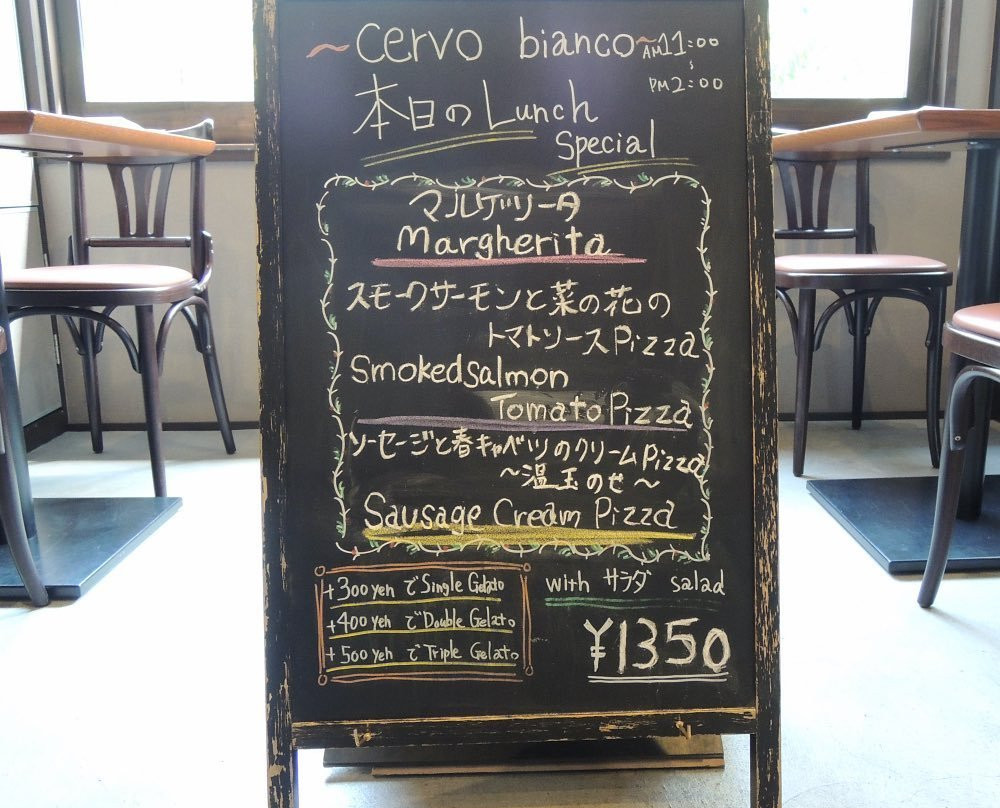 ~cervo bianco~
AM11:00
~
PM2:00
本日のLunch
Special
マルゲリータ
Margherita
スモークサーモンと菜の花の
トマトソースPizza
Smokedsalmon
Tomato Pizza
ソーセージと春キャベツのクリームPizza
~温玉のせ~
Sausage Cream Pizza
+300yen でSingle Gelato
+400yen でDouble Gelato
+500yen でTriple Gelato
with サラダ salad
¥1350